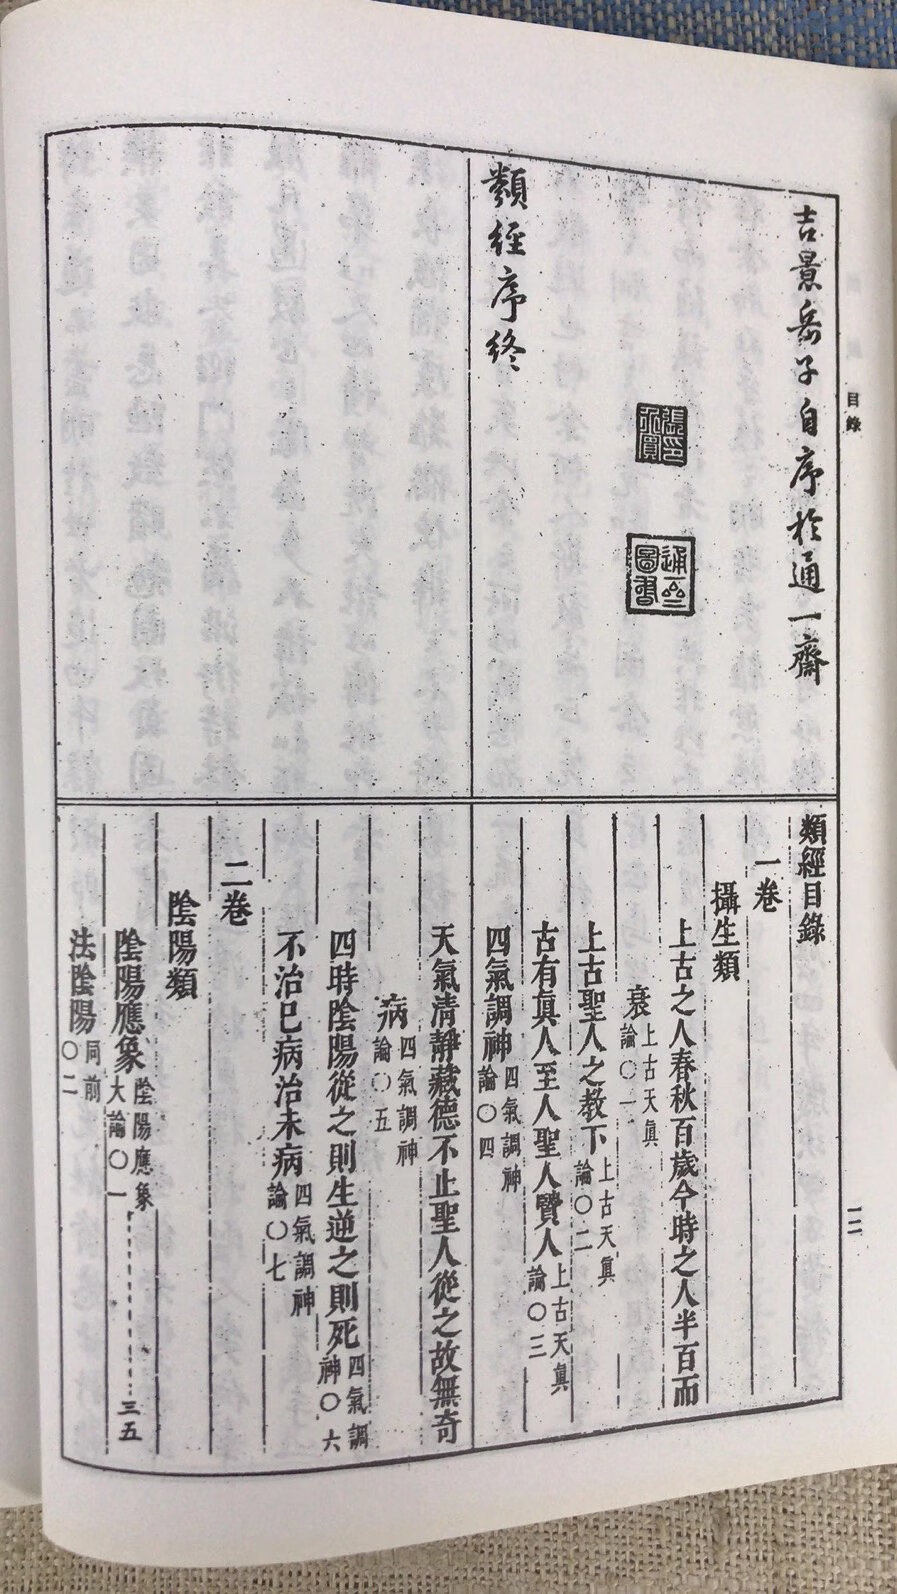 目錄
一二
吉景岳子自序於通一齋
張介賓印
通一齋圖書
類經序終
類經目錄
一卷
攝生類
上古之人春秋百歲今時之人半百而
衰上古天眞論〇一
上古聖人之教下上古天眞論〇二
古有眞人至人聖人賢人上古天眞論〇三
四氣調神四氣調神論〇四
天氣清靜藏德不止聖人從之故無奇
病四氣調神論〇五
四時陰陽從之則生逆之則死四氣調神〇六
不治已病治未病四氣調神論〇七
二卷
陰陽類
陰陽應象陰陽應象大論〇一 三五
法陰陽同前〇二